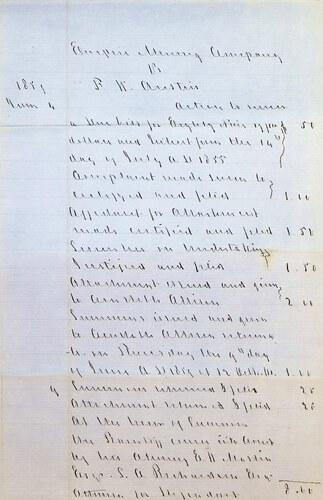 Empire Mining Company
Vs
P. K. Austin
1859 Action to recover
June 4 a due bill for Eighty Five
dollars and Interest from the 14th
day of July A.D 1855
Complaint made sworn to
certified and filed 1.00
Affidavit for Attachment
made certified and filed 1.50
Securities on Undertaking
Justified and filed 1.50
Attachment issued and given
to Constable Allison 2 00
Summons issued and given
to Constable Allison
on Thursday the 9th day
of June A.D 1859 at 12 1.00
9 Summons returned & filed 25
Attachment returned & filed 25
At the hour of Summons
the Plaintiff
by his Attorney E. H.
Esqr. S. A. Richardson Esqr.
Attorney for Defendant 8.00